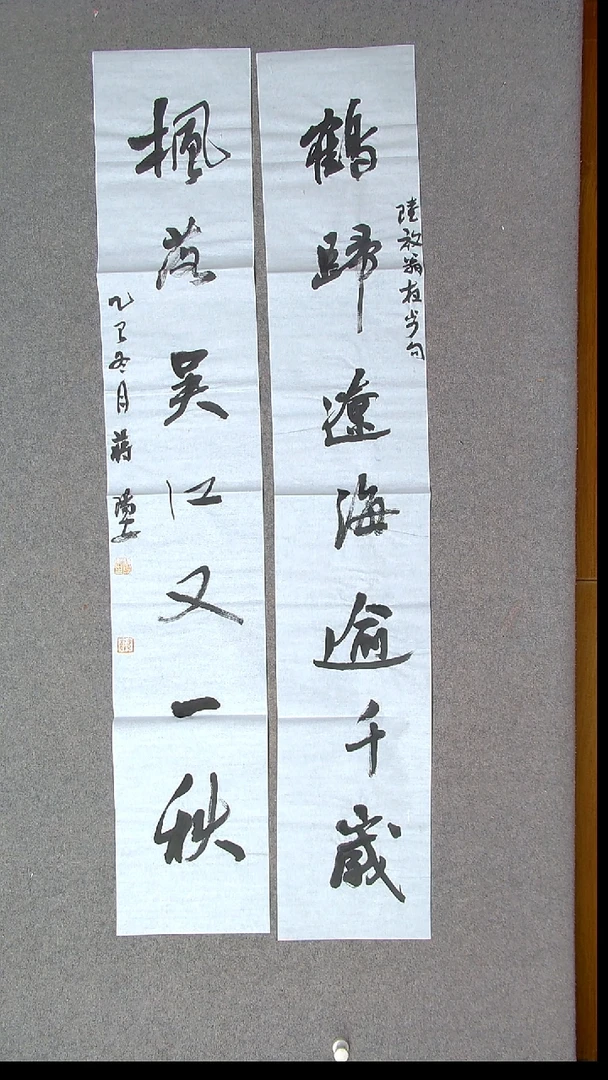 鶴歸遼海逾千歲
陸放翁枉步句
楓落吳江又一秋
乙巳冬月蔣